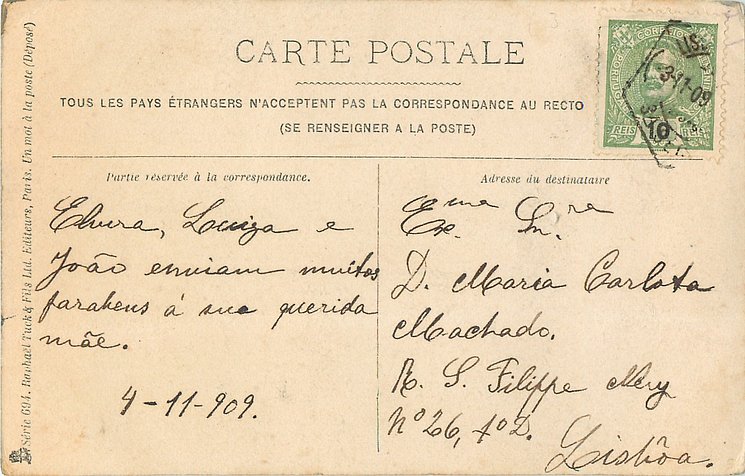 CARTE POSTALE
TOUS LES PAYS ÉTRANGERS N'ACCEPTENT PAS LA CORRESPONDANCE AU RECTO
(SE RENSEIGNER A LA POSTE)
Partie réservée à la correspondance.
Elvira, Luiza e
João enviam muitos
parabens á sua querida
mãe.
4-11-909.
Adresse du destinataire
Exma Snra
D. Maria Carlota
Machado.
R. S. Filippe Nery
Nº 26, 1º D.
Lisbôa.
Série 694. Raphaël Tuck & Fils Ltd. Editeurs, Paris. Un mot à la poste (Déposé)
CORREIOS
REIS 10
3-11-09